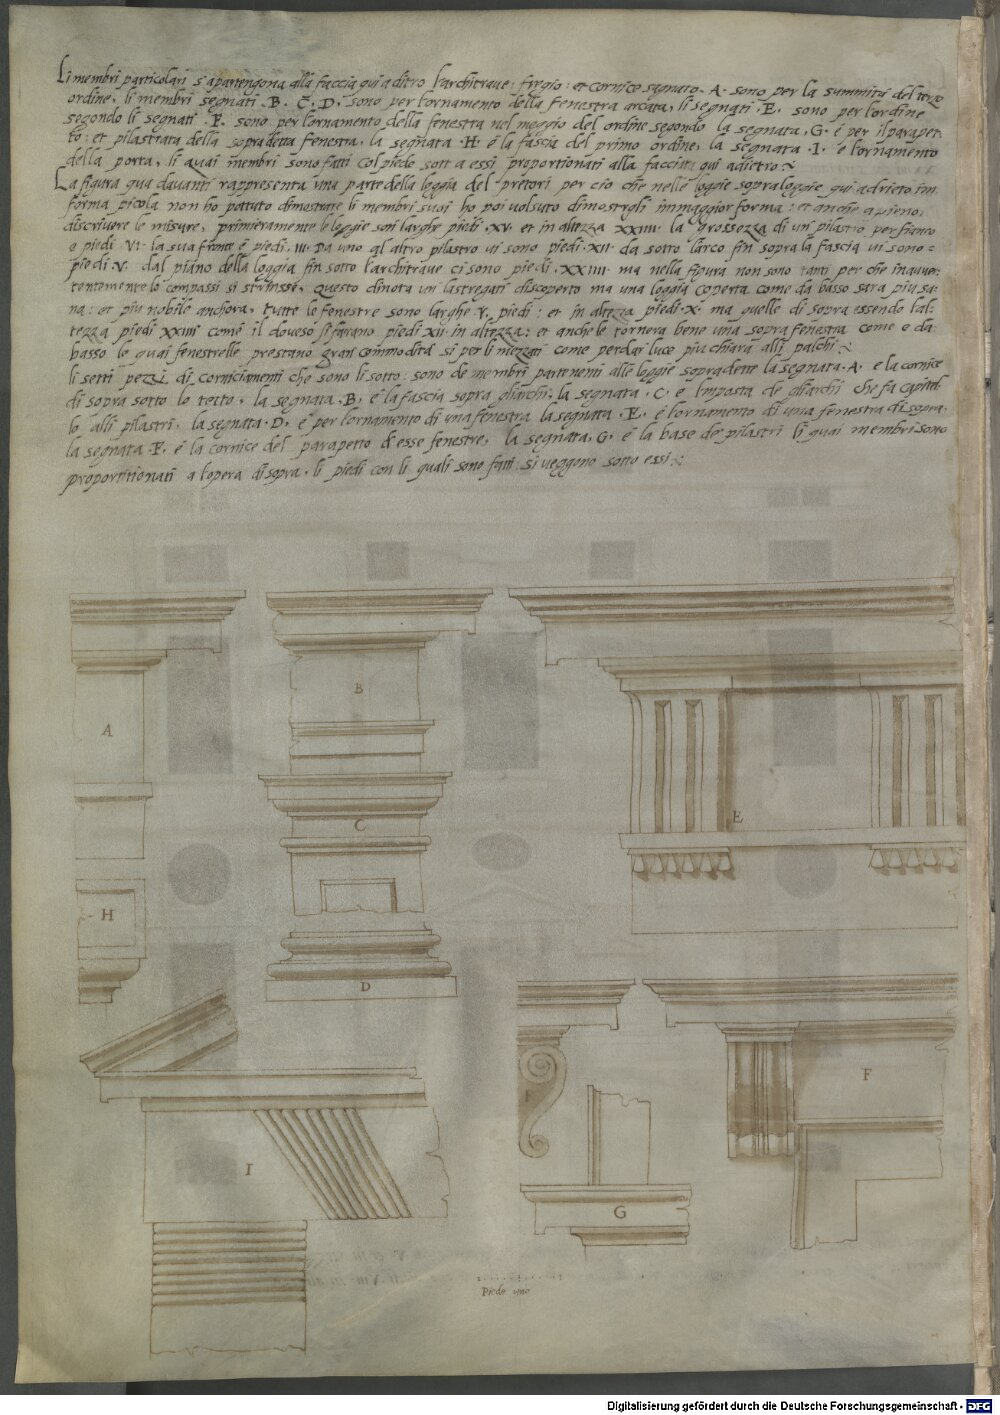 Li membri particolari s'apartengona alla faccia qui aditro l'architraue: frigio: et cornice segnato. A. sono per la summità del terzo
ordine, li membri segnati .B. C. D. sono per l'ornamento della fenestra arcata, li segnati .E. sono per l'ordine
segondo li segnati .F. sono per l'ornamento della fenestra nel meggio del ordine segondo la segnata .G. é per il parapet
to: et pilastrata della sopradetta fenestra, la segnata .H. é la fascia del primo ordine, la segnata .I. é l'ornamento
della porta, li quai membri sono fatti col piede sott a essi proportionati alla facciata qui adietro
La figura qua dauanti rappresenta vna parte della loggia del pretori per cio che nelle loggie sopraloggie qui adrieto in
forma picola non ho potuto dimostrare li membri suoi ho poi uolsuto dimostrgli in maggior forma: et anche a pieno,
discriuere le misure, primieramente le loggie son larghe piedi .XV. et in altezza XXIIII. la grossezza di un pilastro, per fianco
e piedi .VI. la sua fronte é piedi .III. Da uno al altro pilastro ui sono piedi .XII. da sotto l'arco fin sopra la fascia ui sono
piedi .V. dal piano della loggia fin sotto l'architraue ci sono piedi .XXIIII. ma nella figura non sono tanti per che inauer
tentemente lo compassi si strinsse, questo dinota un lastregati discoperto ma una loggia coperta come da basso sara piu sa
na: et piu nobile anchora, tutte le fenestre sono larghe .V. piedi: et in altezza piedi .X. ma quelle di sopra essendo l'al
tezza piedi XXIIII come il doueso si farano piedi XII in altezza: et anche le tornera bene una sopra fenestra come e da
basso le quai fenestrelle prestano gran commodita si per li mezzati come per dar luce piu chiara alli palchi
li setti pezzi di corniciamenti che sono li sotto sono de membri partenenti alle loggie sopradette la segnata .A. e la cornice
di sopra sotto lo tetto, la segnata .B. é la fascia sopra gliarchi, la segnata .C. e l'imposta de gliarchi che fa capitel
lo alli pilastri, la segnata .D. é per l'ornamento di una finestra la segnata .E. é l'ornamento di una fenestra di sopra,
la segnata .F. é la cornice del parapetto d'esse fenestre, la segnata .G. é la base de pilastri li quai membri sono
proportitionati a l'opera di sopra, li piedi con li quali sono fatti si ueggono sotto essi
A
B
C
D
E
H
I
F
F
G
Piede uno
Digitalisierung gefördert durch die Deutsche Forschungsgemeinschaft - DFG